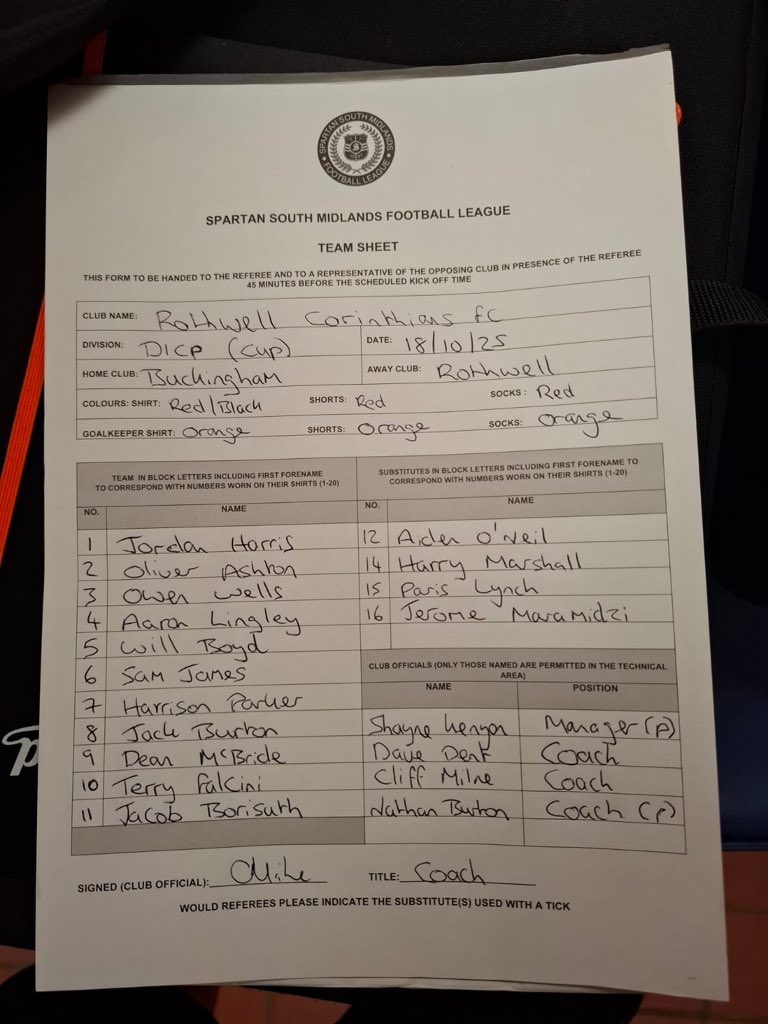 SPARTAN SOUTH MIDLANDS
FOOTBALL LEAGUE
SPARTAN SOUTH MIDLANDS FOOTBALL LEAGUE
TEAM SHEET
THIS FORM TO BE HANDED TO THE REFEREE AND TO A REPRESENTATIVE OF THE OPPOSING CLUB IN PRESENCE OF THE REFEREE
45 MINUTES BEFORE THE SCHEDULED KICK OFF TIME
CLUB NAME: Rothwell Corinthians FC
DIVISION: DICP (CUP) DATE: 18/10/25
HOME CLUB: Buckingham AWAY CLUB: Rothwell
COLOURS: SHIRT: Red/Black SHORTS: Red SOCKS: Red
GOALKEEPER SHIRT: Orange SHORTS: Orange SOCKS: Orange
TEAM IN BLOCK LETTERS INCLUDING FIRST FORENAME
TO CORRESPOND WITH NUMBERS WORN ON THEIR SHIRTS (1-20)
NO. NAME
1 Jordan Harris
2 Oliver Ashton
3 Owen Wells
4 Aaron Lingley
5 Will Boyd
6 Sam James
7 Harrison Parker
8 Jack Burton
9 Dean McBride
10 Terry Falcini
11 Jacob Borisuth
SUBSTITUTES IN BLOCK LETTERS INCLUDING FIRST FORENAME TO
CORRESPOND WITH NUMBERS WORN ON THEIR SHIRTS (1-20)
NO. NAME
12 Aiden O'Neil
14 Harry Marshall
15 Paris Lynch
16 Jerome Maramidzi
CLUB OFFICIALS (ONLY THOSE NAMED ARE PERMITTED IN THE TECHNICAL
AREA)
NAME POSITION
Shayne Kenyon Manager (P)
Dave Dent Coach
Cliff Milne Coach
Nathan Burton Coach (P)
SIGNED (CLUB OFFICIAL): TITLE: Coach
WOULD REFEREES PLEASE INDICATE THE SUBSTITUTE(S) USED WITH A TICK